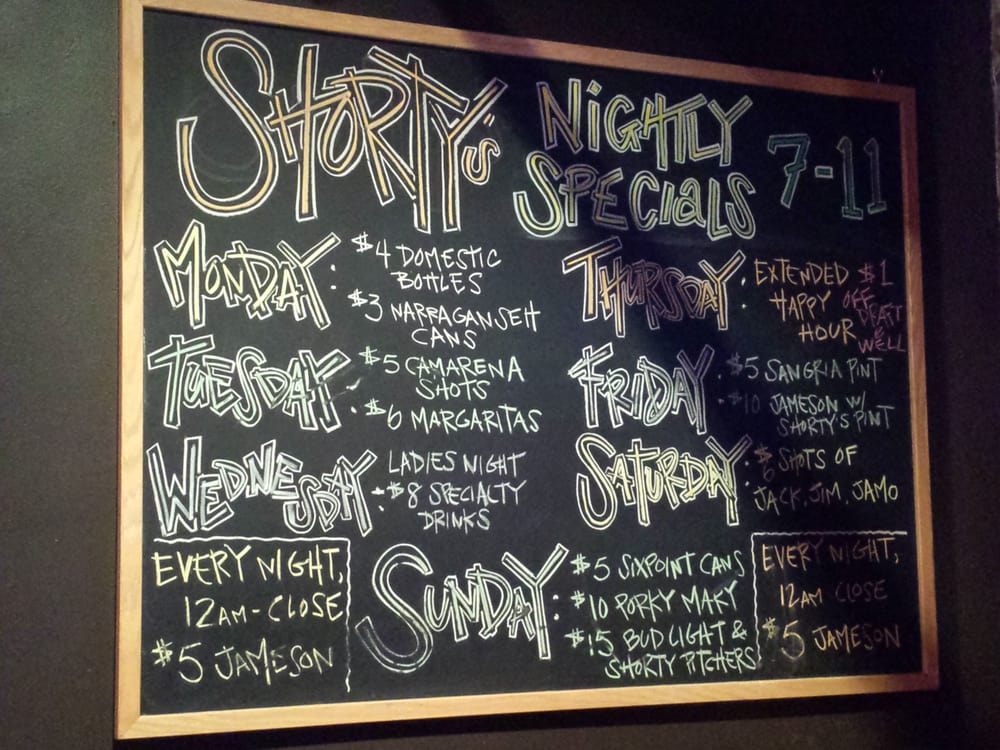 SHORTY'S
NIGHTLY
SPECIALS
7-11
MONDAY:
$4 DOMESTIC
BOTTLES
$3 NARRAGANSETT
CANS
TUESDAY:
$5 CAMARENA
SHOTS
$6 MARGARITAS
WEDNESDAY:
LADIES NIGHT
$8 SPECIALTY
DRINKS
THURSDAY:
EXTENDED
HAPPY
HOUR
$1
OFF
DRAFT
&
WELL
FRIDAY:
$5 SANGRIA PINT
$10 JAMESON W/
SHORTY'S PINT
SATURDAY:
$6 SHOTS OF
JACK, JIM, JAMO
EVERY NIGHT,
12AM-CLOSE
$5 JAMESON
SUNDAY:
$5 SIXPOINT CANS
$10 PORKY MAKY
$15 BUD LIGHT &
SHORTY PITCHERS
EVERY NIGHT,
12AM CLOSE
$5 JAMESON